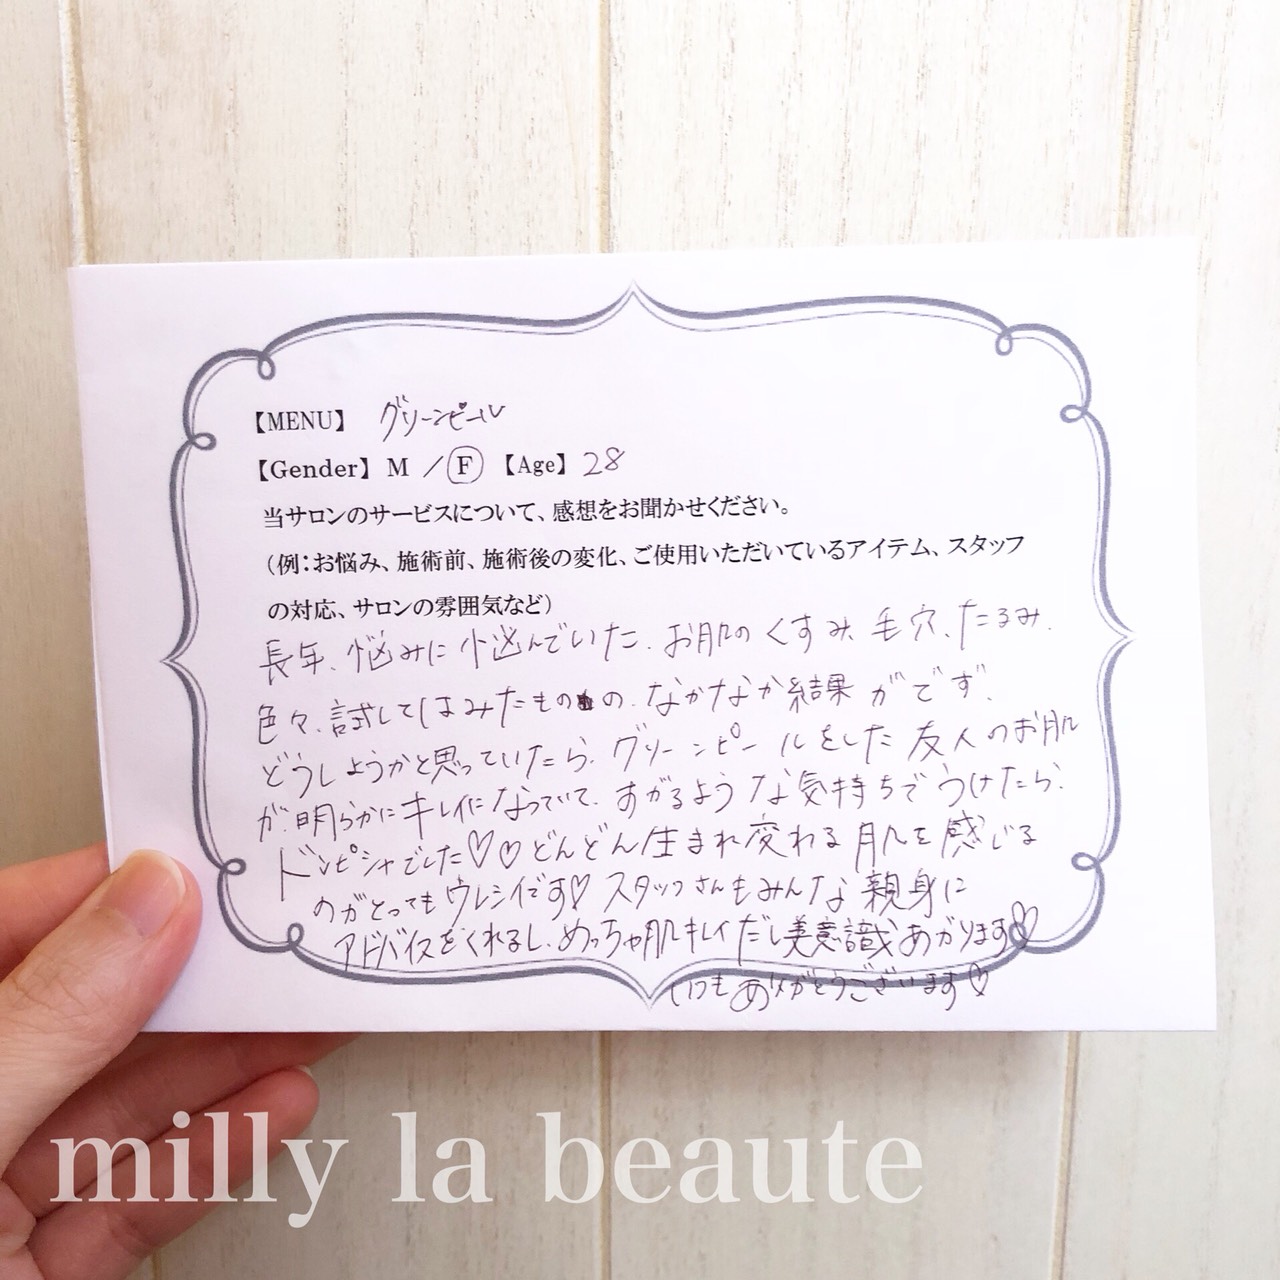 【MENU】 グリーンピール
【Gender】 M / F 【Age】 28
当サロンのサービスについて、感想をお聞かせください。
（例：お悩み、施術前、施術後の変化、ご使用いただいているアイテム、スタッフ
の対応、サロンの雰囲気など）
長年、悩みに悩んでいた、お肌のくすみ、毛穴、たるみ、
色々、試してはみたものの、なかなか結果がでず、
どうしようかと思っていたら、グリーンピールをした友人のお肌
が、明らかにキレイになっていて、すがるような気持ちでうけたら、
ドンピシャでした♡♡どんどん生まれ変わる肌を感じる
のがとってもウレシイです♡スタッフさんもみんな親身に
アドバイスをくれるし、めっちゃ肌キレイだし美意識あがります♡
いつもありがとうございます♡
milly la beaute